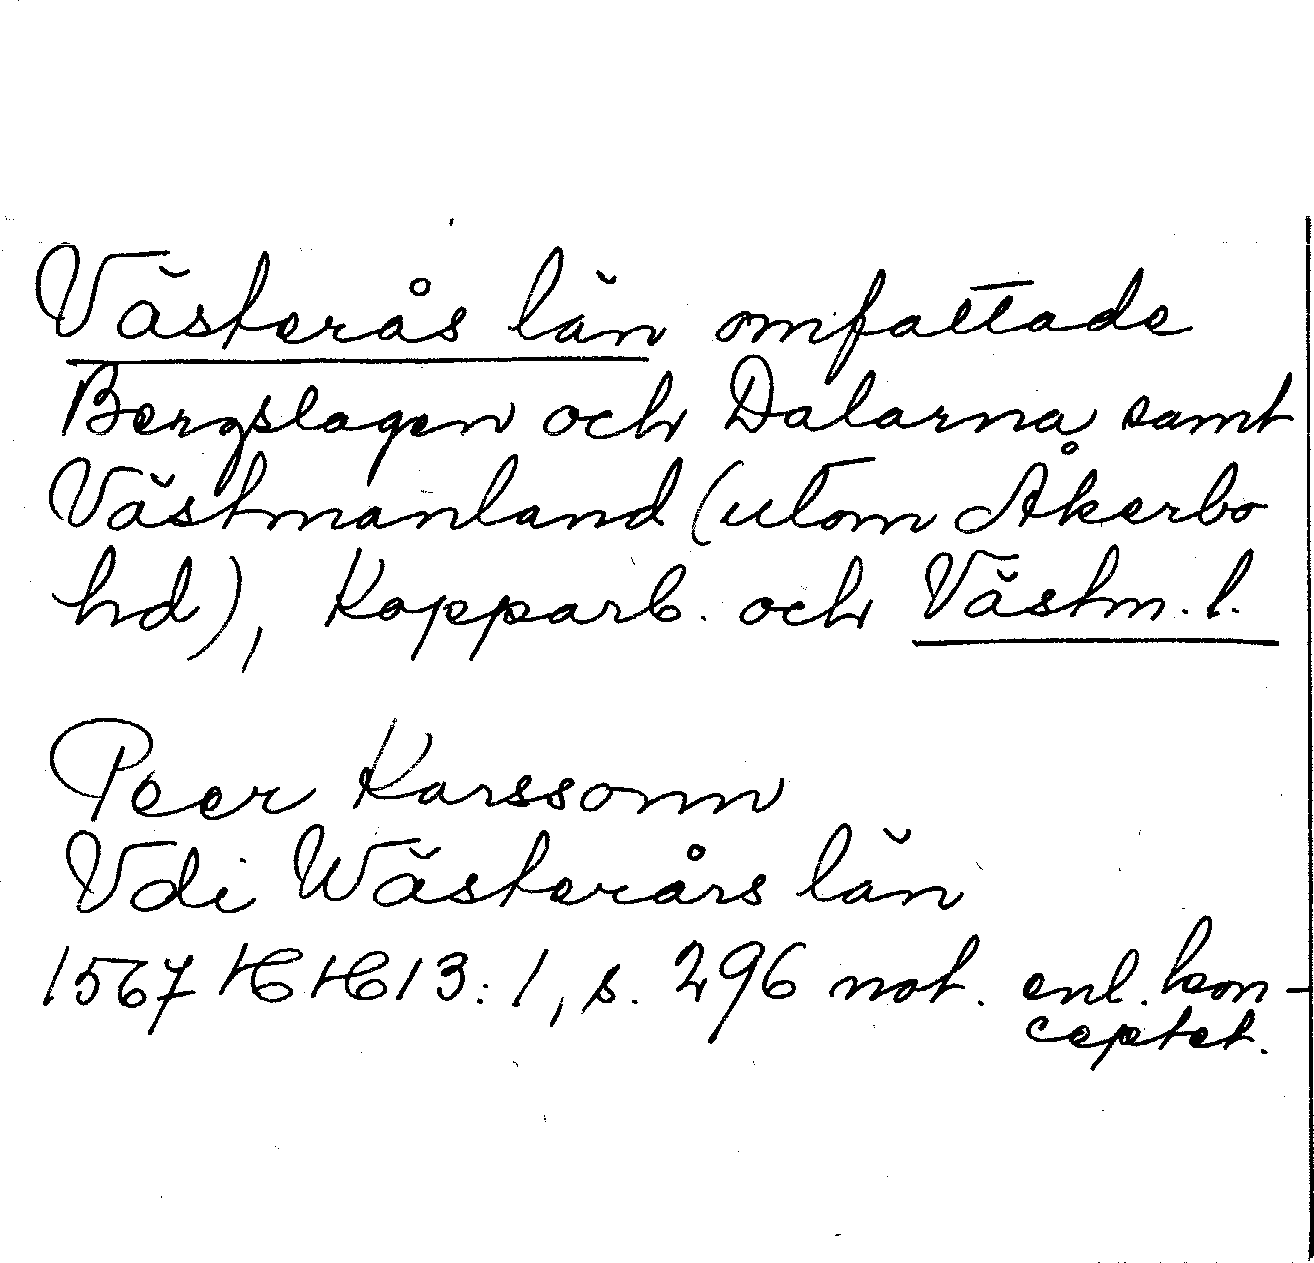 Västerås län omfattade
Bergslagen och Dalarna samt
Västmanland (utom Åkerbo
hd), Kopparb. och Västm. l.
Peer Karssonn
Vdi Wästerårs län
1567 HH 13:1, s. 296 not. enl. kon-
ceptet.